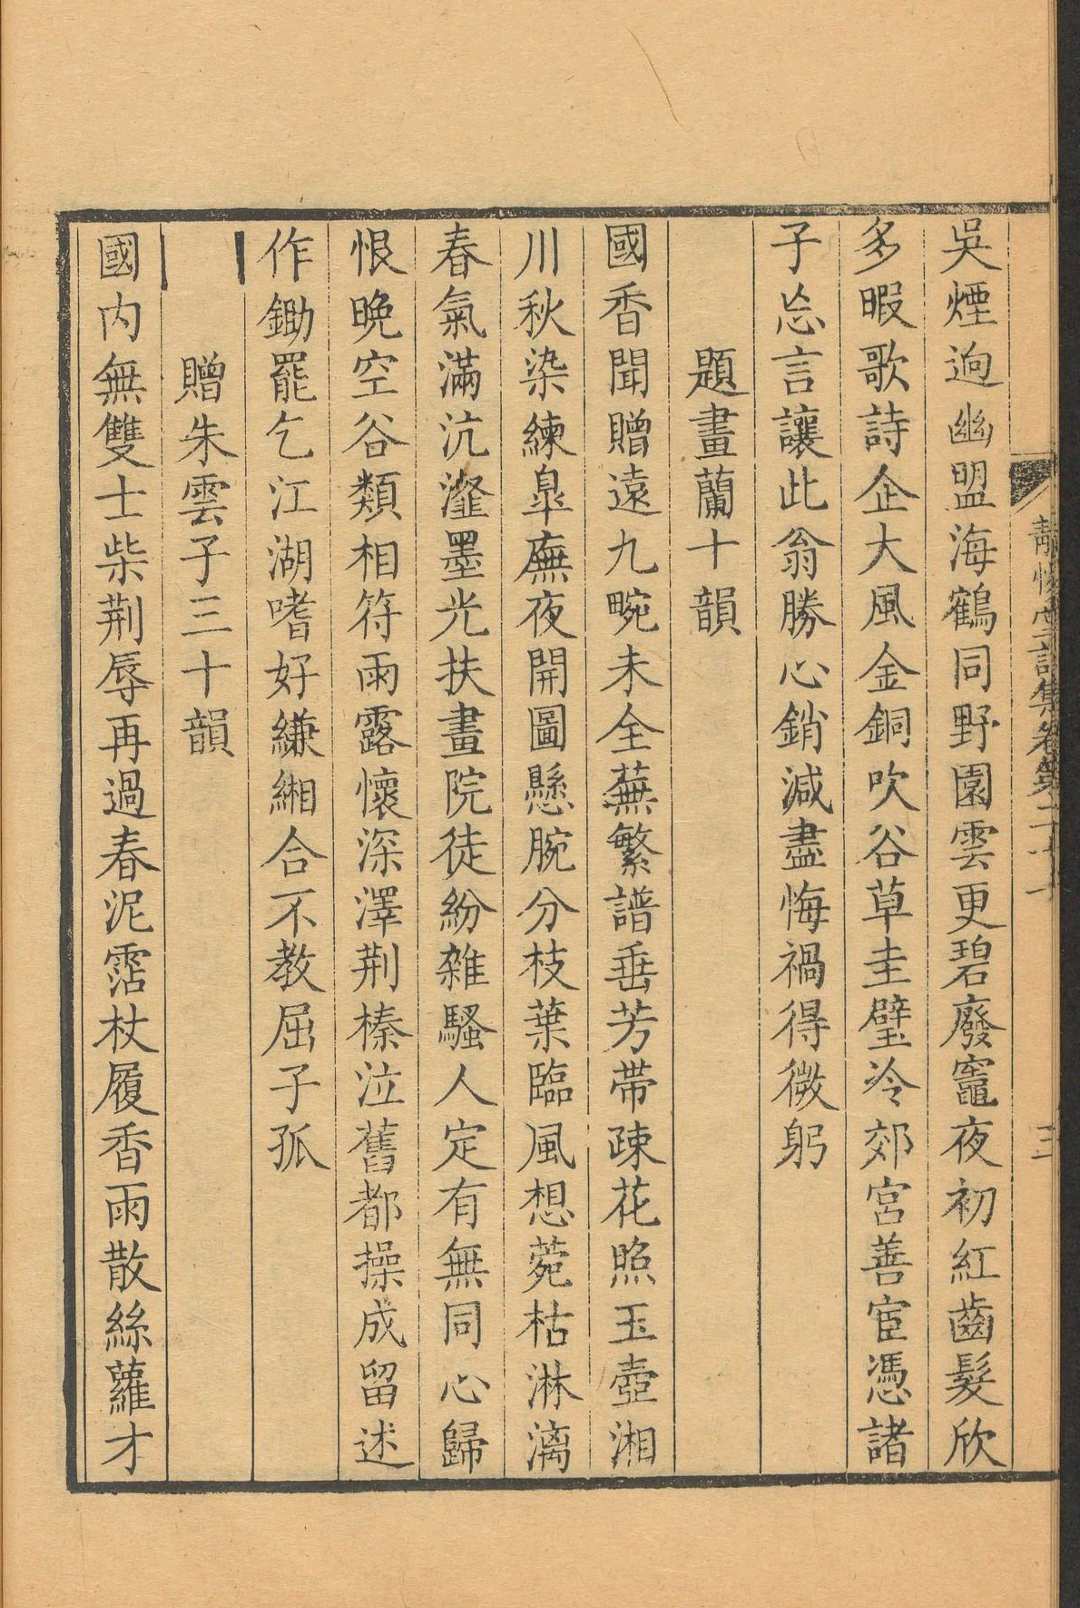 吳煙逈幽盟海鶴同野園雲更碧廢竈夜初紅齒髮欣
多暇歌詩企大風金銅吹谷草圭璧冷郊宮善宦憑諸
子忘言讓此翁勝心銷減盡悔禍得微躬
題畫蘭十韻
國香聞贈遠九畹未全蕪繁譜垂芳帶疎花照玉壺湘
川秋染練臯廡夜開圖懸腕分枝葉臨風想菀枯淋漓
春氣滿沆瀣墨光扶畫院徒紛雜騷人定有無同心歸
恨晚空谷類相符雨露懷深澤荆榛泣舊都操成留述
作鋤罷乞江湖嗜好縑緗合不教屈子孤
贈朱雲子三十韻
國内無雙士柴荆辱再過春泥霑杖履香雨散絲蘿才
靜惕堂詩集卷第二十一
三